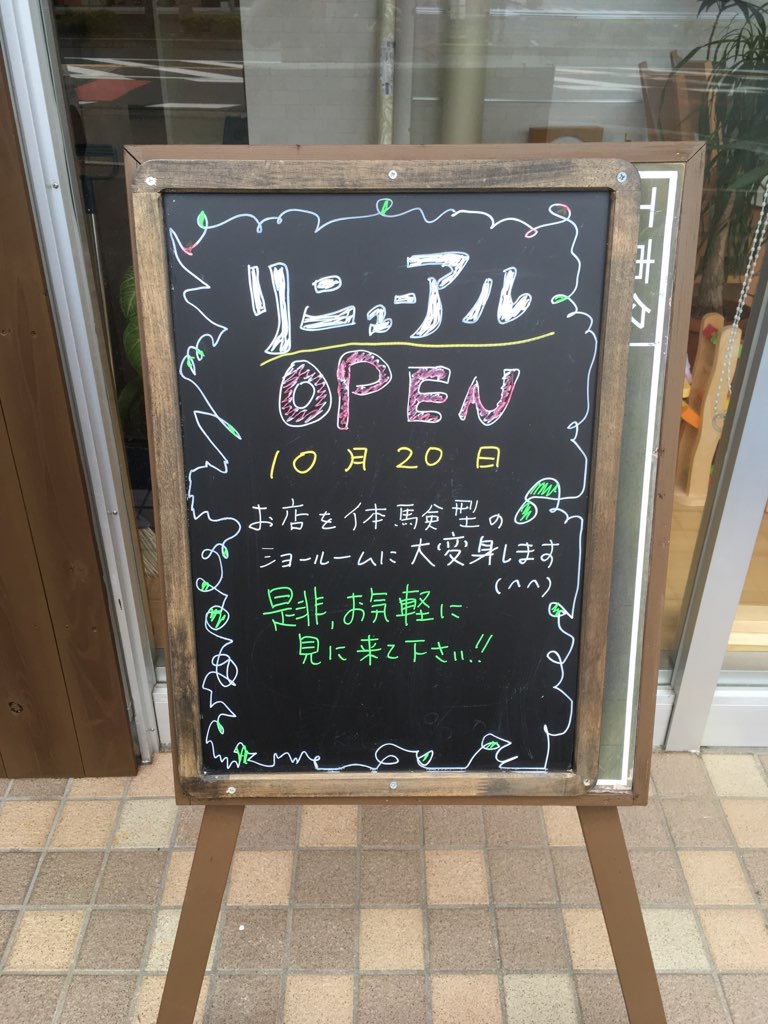 リニューアル
OPEN
10月20日
お店を体験型の
ショールームに大変身します
(^^)
是非,お気軽に
見に来て下さい!!